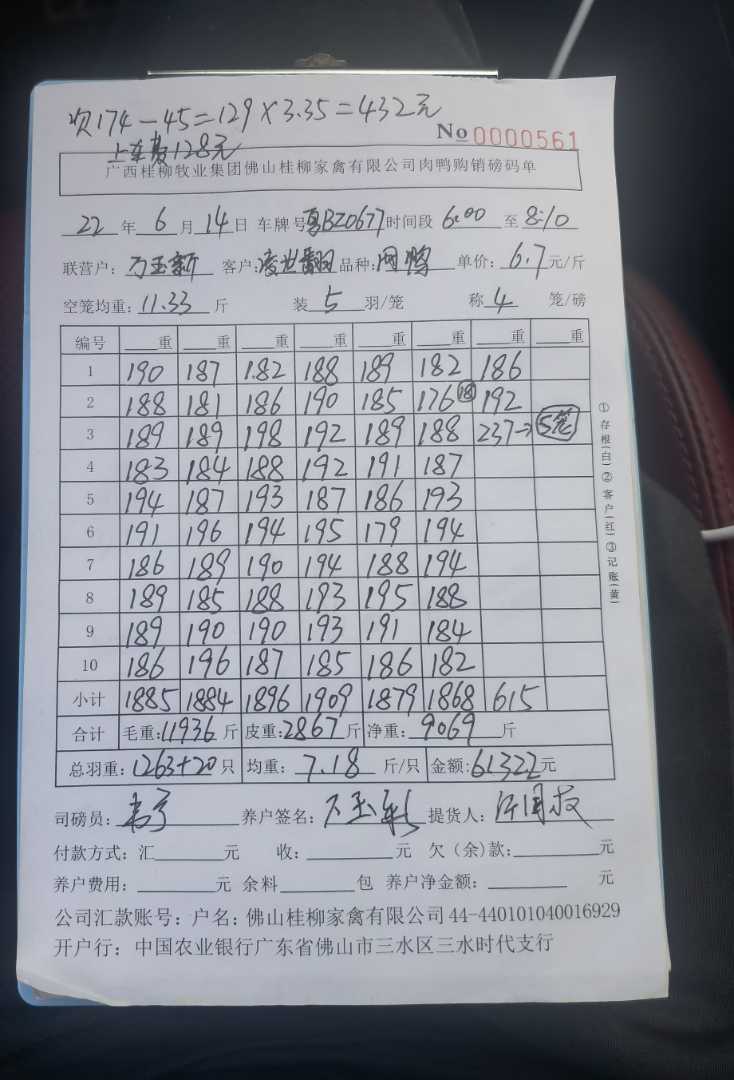 次174-45=129×3.35=432元
上车费128元
No 0000561
广西桂柳牧业集团佛山桂柳家禽有限公司肉鸭购销磅码单
22年6月14日 车牌号粤BZ0677时间段6:00至8:10
联营户:万玉新 客户:凌世翻 品种: 单价:6.7元/斤
空笼均重:11.33斤 装5羽/笼 称4笼/磅
编号 重 重 重 重 重 重 重 重
1 190 187 182 188 189 182 186
2 188 181 186 190 185 176 18 192
3 189 189 198 192 189 188 237→5笼
4 183 184 188 192 191 187
5 194 187 193 187 186 193
6 191 196 194 195 179 194
7 186 189 190 194 188 194
8 189 185 188 193 195 188
9 189 190 190 193 191 184
10 186 196 187 185 186 182
小计 1885 1884 1896 1909 1879 1868 615
合计 毛重:11936斤 皮重:2867斤 净重:9069斤
总羽重:1263+20只 均重:7.18斤/只 金额:61322元
司磅员: 养户签名:万玉新 提货人:
付款方式:汇 元 收: 元 欠(余)款: 元
养户费用: 元 余料 包 养户净金额: 元
公司汇款账号:户名:佛山桂柳家禽有限公司 44-440101040016929
开户行:中国农业银行广东省佛山市三水区三水时代支行
①存根(白)②客户(红)③记账(黄)